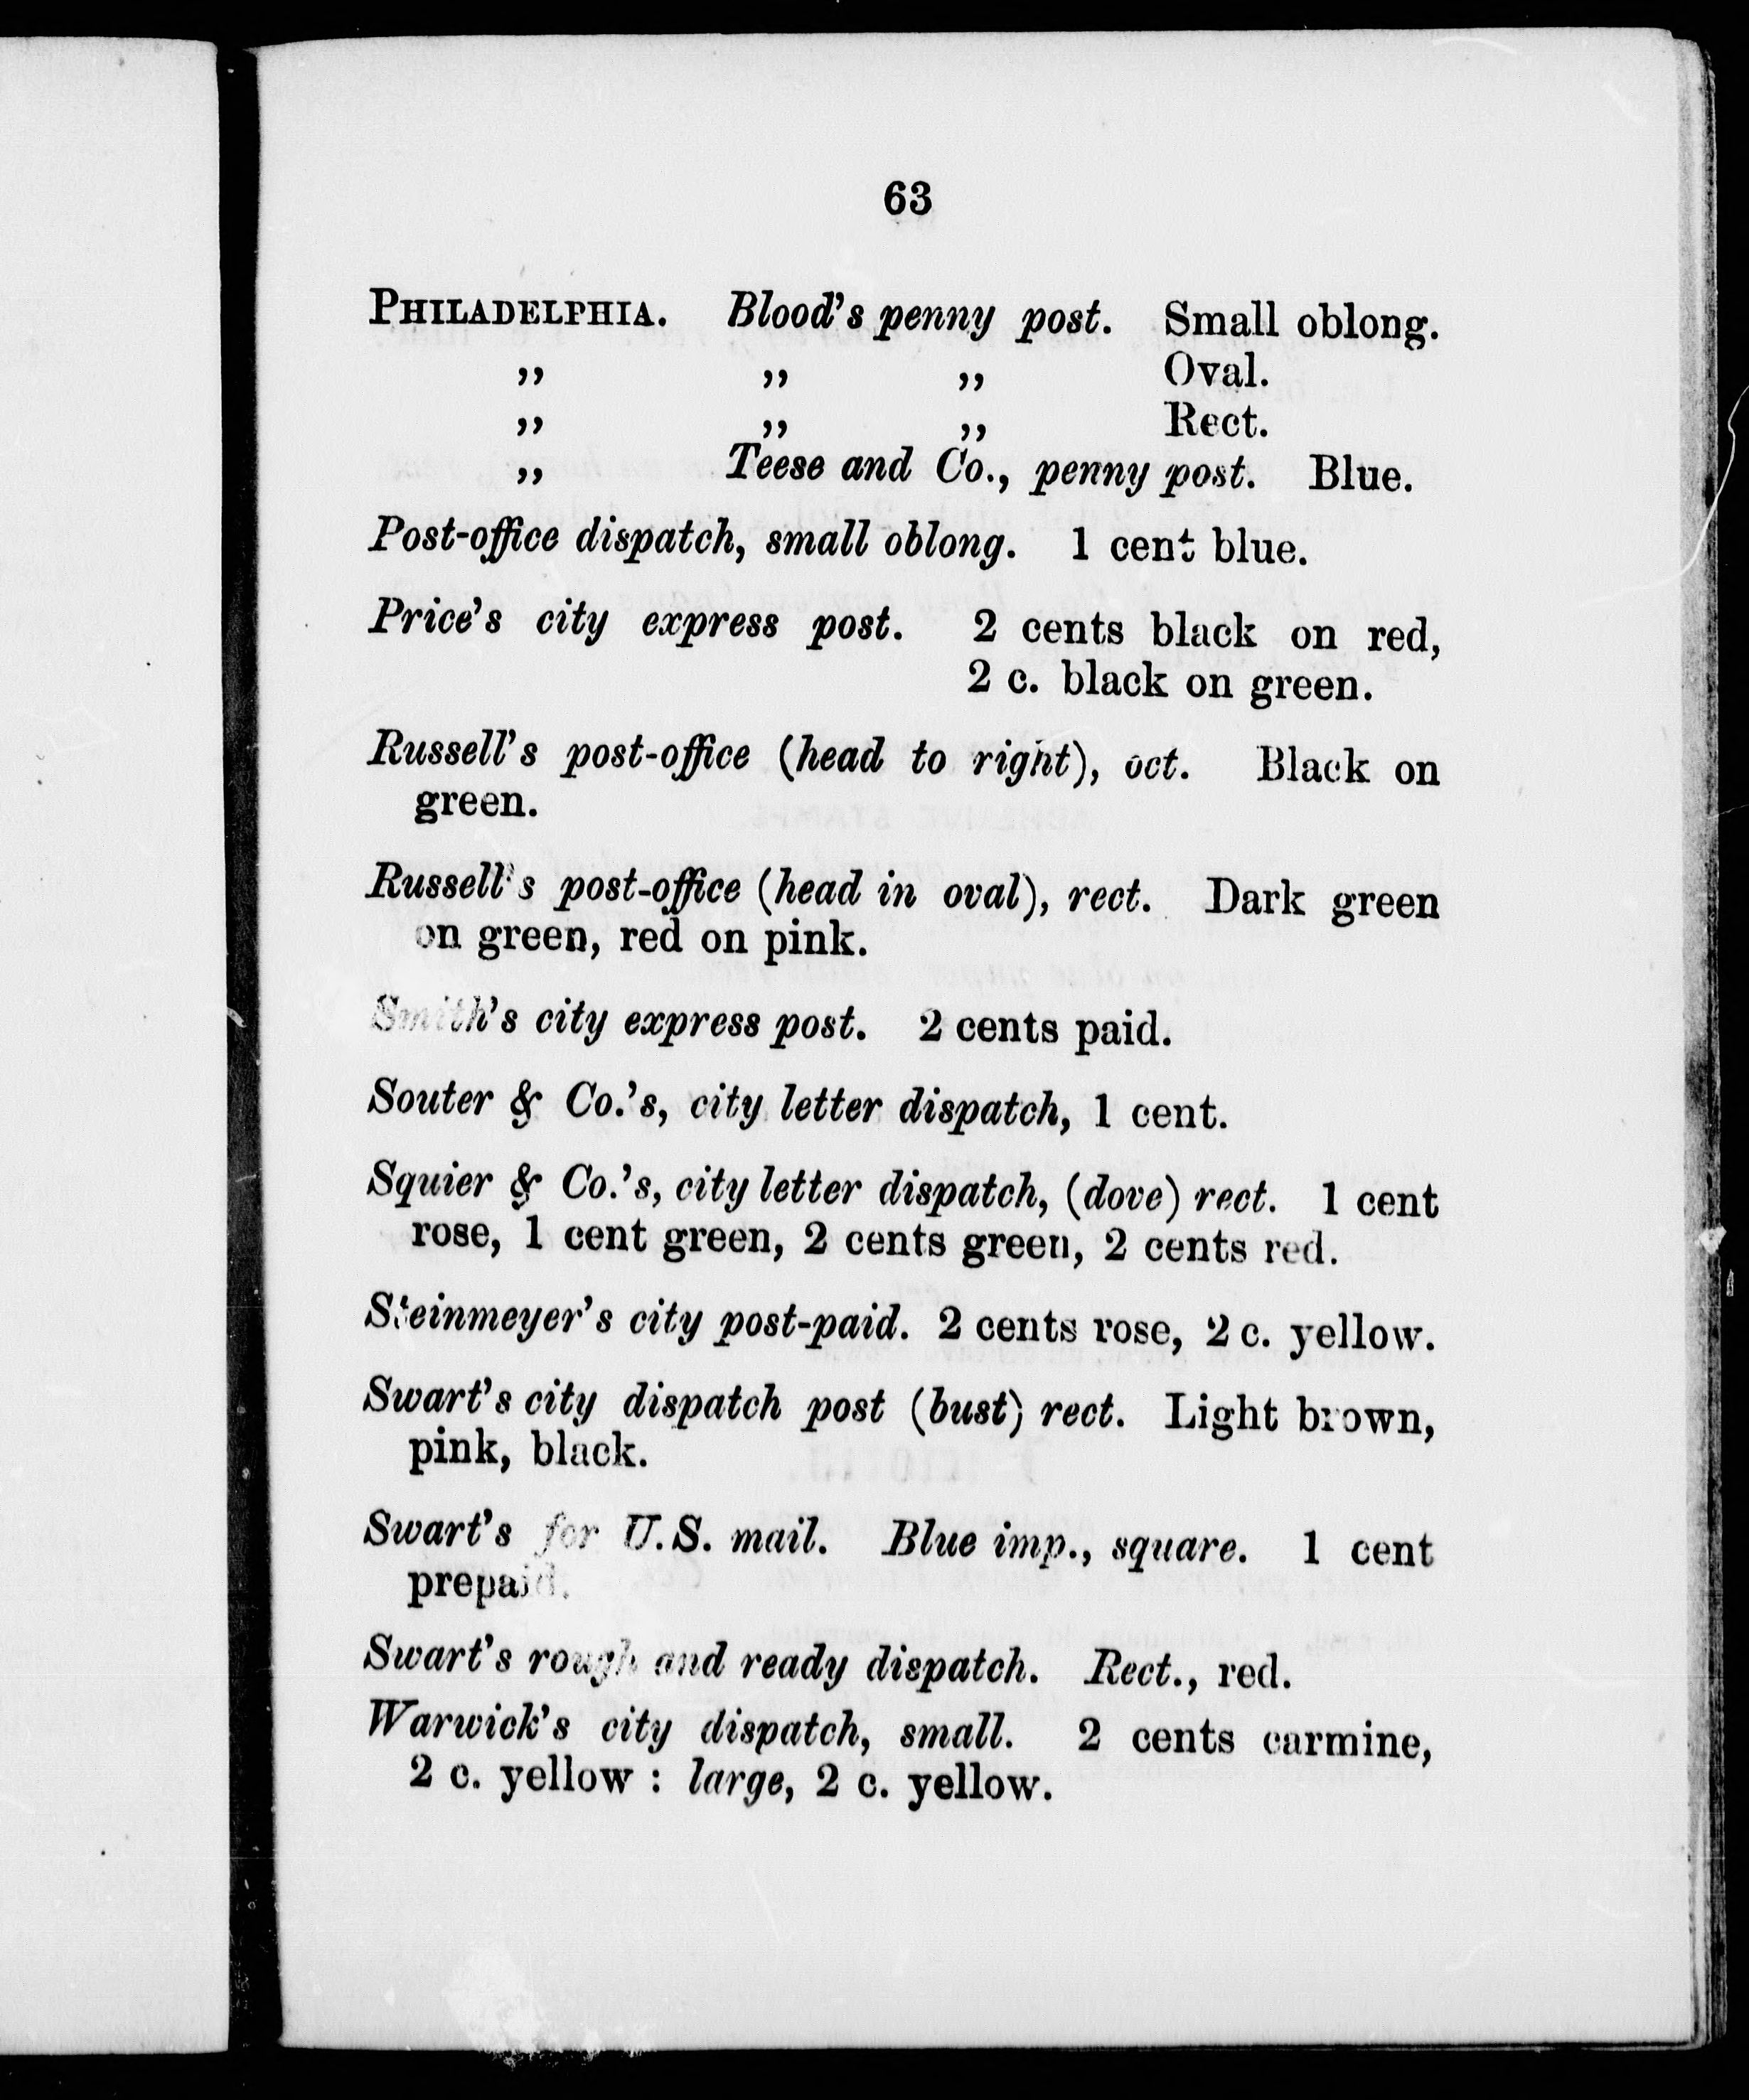 63
PHILADELPHIA. Blood's penny post. Small oblong.
,, ,, ,, Oval.
,, ,, ,, Rect.
,, Teese and Co., penny post. Blue.
Post-office dispatch, small oblong. 1 cent blue.
Price's city express post. 2 cents black on red,
2 c. black on green.
Russell's post-office (head to right), oct. Black on
green.
Russell's post-office (head in oval), rect. Dark green
on green, red on pink.
Smith's city express post. 2 cents paid.
Souter & Co.'s, city letter dispatch, 1 cent.
Squier & Co.'s, city letter dispatch, (dove) rect. 1 cent
rose, 1 cent green, 2 cents green, 2 cents red.
Steinmeyer's city post-paid. 2 cents rose, 2 c. yellow.
Swart's city dispatch post (bust) rect. Light brown,
pink, black.
Swart's for U.S. mail. Blue imp., square. 1 cent
prepaid.
Swart's rough and ready dispatch. Rect., red.
Warwick's city dispatch, small. 2 cents carmine,
2 c. yellow : large, 2 c. yellow.